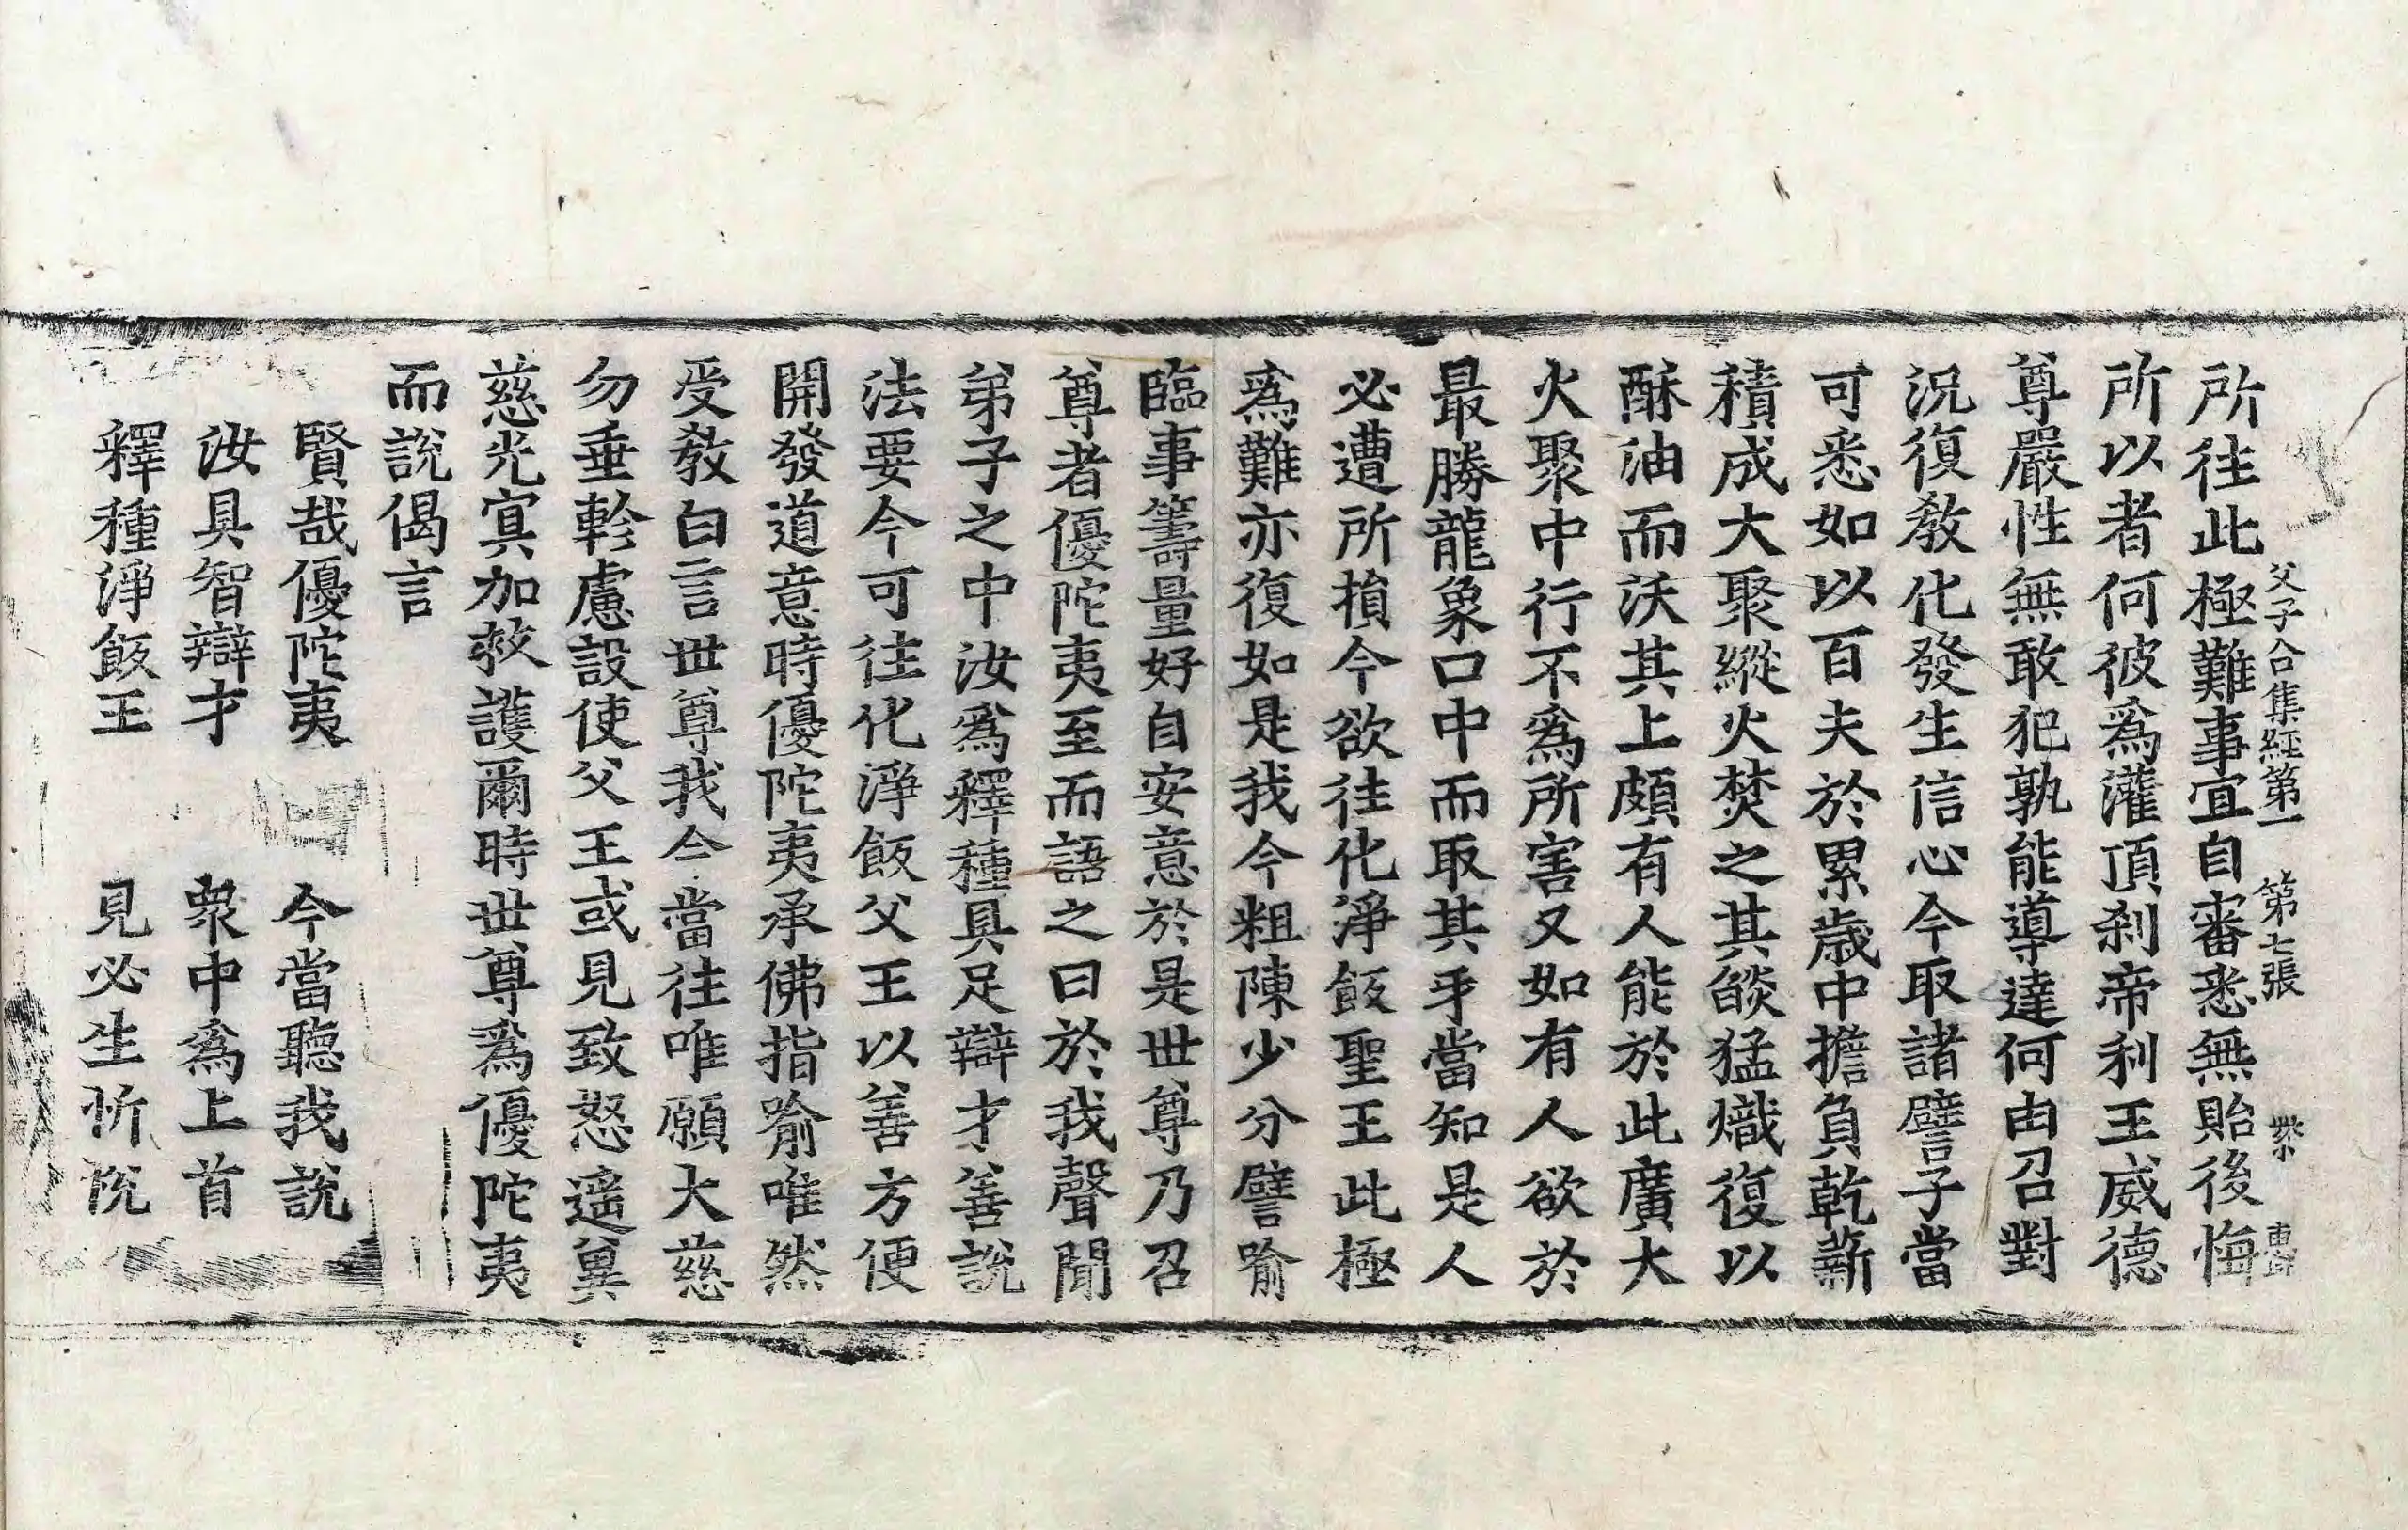 父子合集経第一　第七張
所往此極難事宜自審悉無貽後悔
所以者何彼爲灌頂刹帝利王威德
尊嚴性無敢犯孰能導達何由召對
況復教化發生信心今取諸譬子當
可悉如以百夫於累歲中擔負乾薪
積成大聚縱火焚之其焰猛熾復以
酥油而沃其上頗有人能於此廣大
火聚中行不爲所害又如有人欲於
最勝龍象口中而取其牙當知是人
必遭所損今欲往化淨飯聖王此極
爲難亦復如是我今粗陳少分譬喻
臨事籌量好自安意於是世尊乃召
尊者優陀夷至而語之曰於我聲聞
弟子之中汝爲釋種具足辯才善說
法要今可往化淨飯父王以善方便
開發道意時優陀夷承佛指喻唯然
受教白言世尊我今當往唯願大慈
勿垂軫慮設使父王或見致怒遥冀
慈光冥加救護爾時世尊爲優陀夷
而說偈言
賢哉優陀夷　今當聽我說
汝具智辯才　衆中爲上首
釋種淨飯王　見必生忻悅